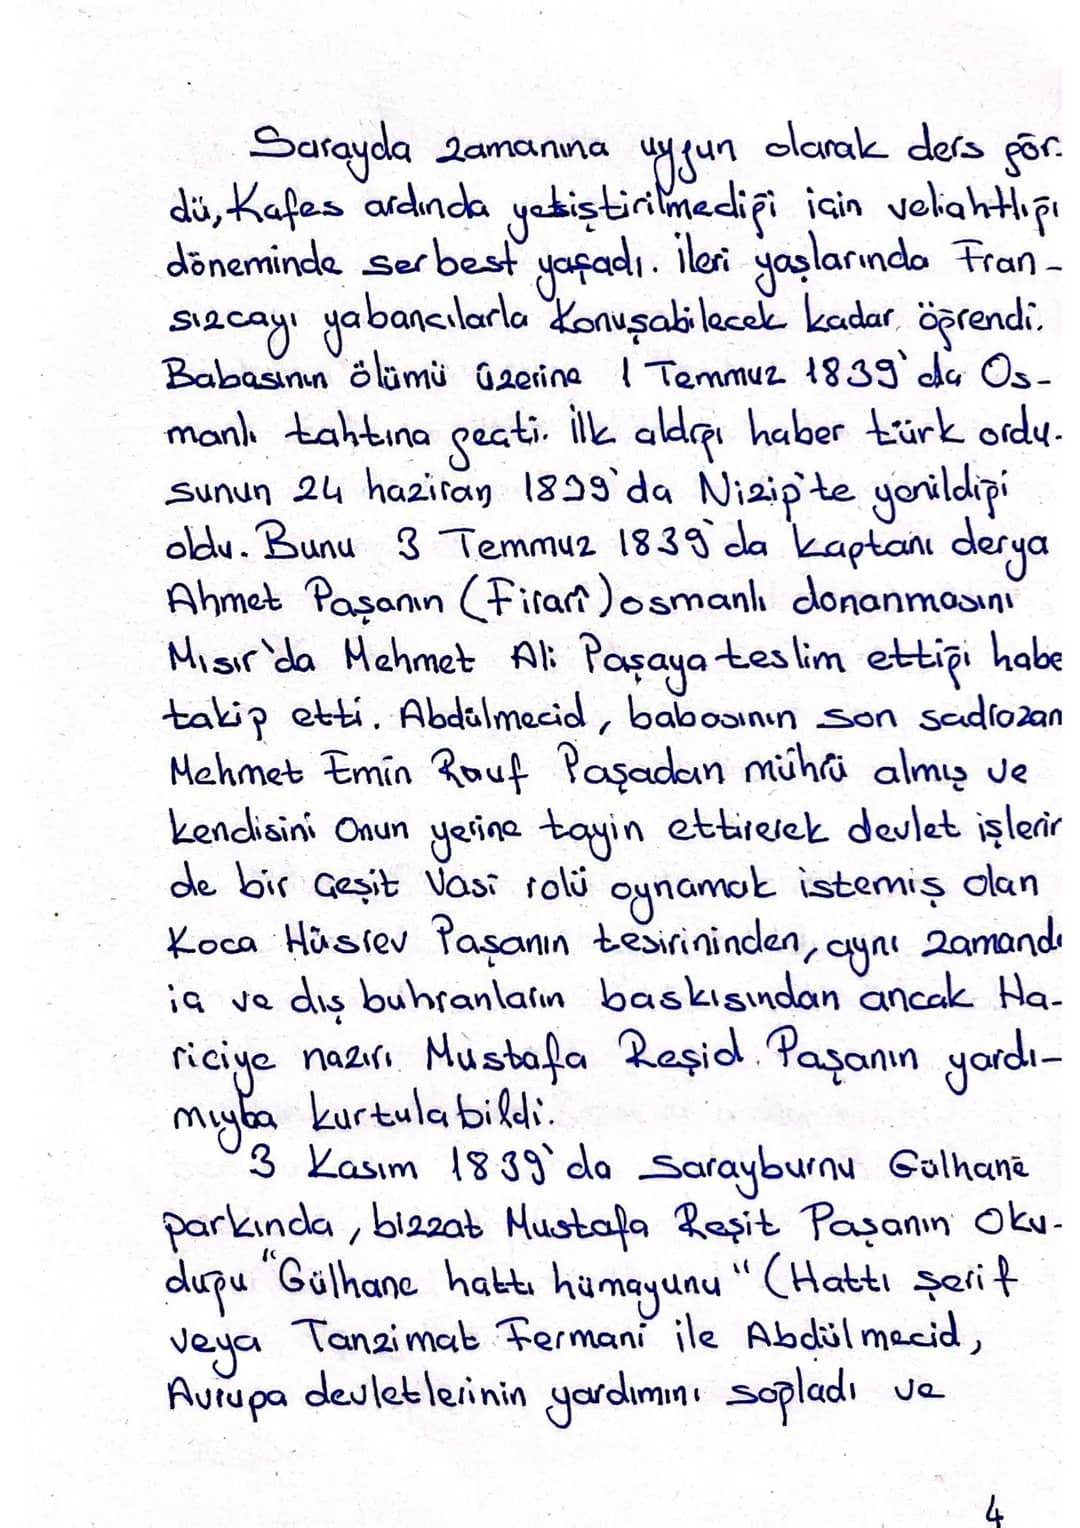 Sarayda zamanına uygun olarak ders gör-
dü, Kafes ardında yetiştirilmediği için veliahtlığı
döneminde serbest yaşadı. ileri yaşlarında Fran-
sızcayı yabancılarla konuşabilecek kadar öğrendi.
Babasının ölümü üzerine 1 Temmuz 1839'da Os-
manlı tahtına geçti. İlk aldığı haber türk ordu-
sunun 24 haziran 1839'da Nizip'te yenildiği
oldu. Bunu 3 Temmuz 1839'da kaptanı derya
Ahmet Paşanın (Firarî) osmanlı donanmasını
Mısır'da Mehmet Ali Paşaya teslim ettiği habe
takip etti. Abdülmecid, babasının son sadrazam
Mehmet Emin Rauf Paşadan mührü almış ve
kendisini Onun yerine tayin ettirerek devlet işlerin
de bir Çeşit Vasi rolü oynamak istemiş olan
Koca Hüsrev Paşanın tesirininden, aynı zamanda
iç ve dış buhranların baskısından ancak Ha-
riciye nazırı Mustafa Reşid Paşanın yardı-
mıyba kurtulabildi.
3 Kasım 1839'da Sarayburnu Gülhane
parkında, bizzat Mustafa Reşit Paşanın Oku-
duğu "Gülhane hattı hümayunu" (Hattı şerif
veya Tanzimat Fermani ile Abdülmecid,
Avrupa devletlerinin yardımını sağladı ve
4